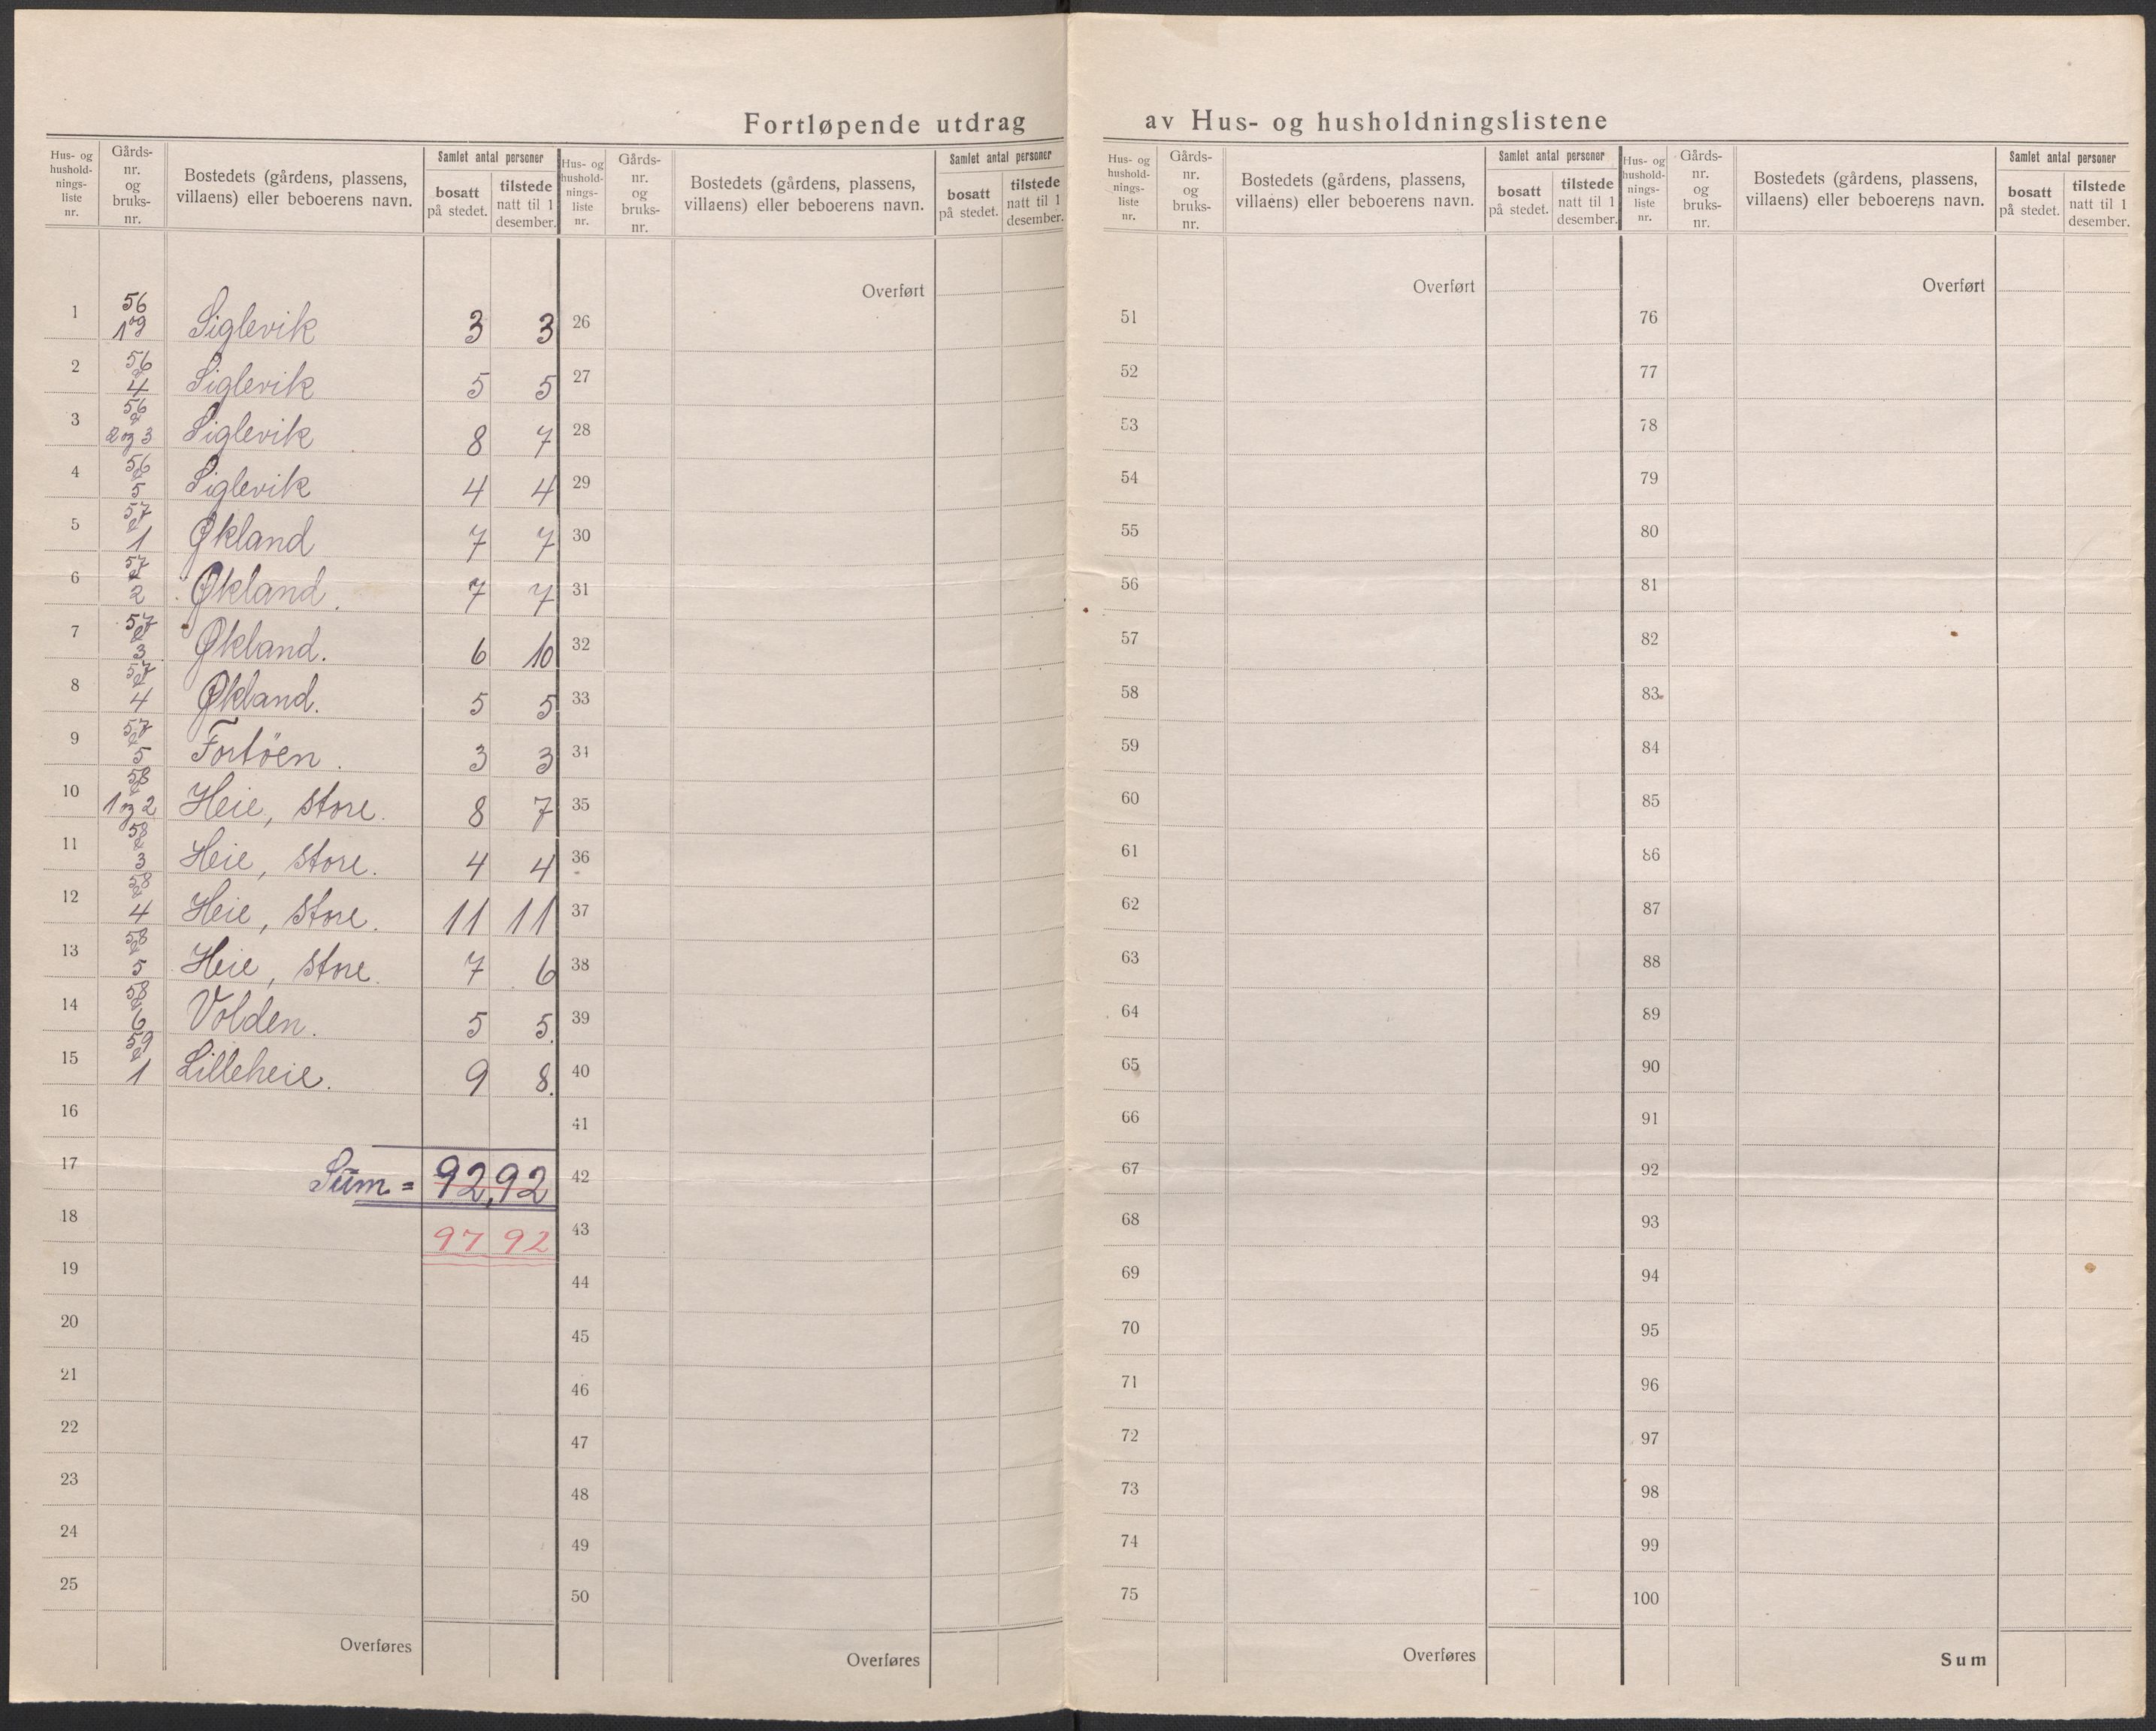 Fortløpende utdrag av Hus- og husholdningslistene
Hus- og hushold-nings-liste nr. | Gårds-nr. og bruks-nr. | Bostedets (gårdens, plassens, villaens) eller beboerens navn. | Samlet antal personer | bosatt på stedet. | tilstede natt til 1 desember.
Hus- og hushold-nings-liste nr. | Gårds-nr. og bruks-nr. | Bostedets (gårdens, plassens, villaens) eller beboerens navn. | Samlet antal personer | bosatt på stedet. | tilstede natt til 1 desember.
Hus- og hushold-nings-liste nr. | Gårds-nr. og bruks-nr. | Bostedets (gårdens, plassens, villaens) eller beboerens navn. | Samlet antal personer | bosatt på stedet. | tilstede natt til 1 desember.
Hus- og hushold-nings-liste nr. | Gårds-nr. og bruks-nr. | Bostedets (gårdens, plassens, villaens) eller beboerens navn. | Samlet antal personer | bosatt på stedet. | tilstede natt til 1 desember.
1 56 Siglevik 3 3
2 56 4 Siglevik 5 5
3 56 2 og 3 Siglevik 8 7
4 56 5 Siglevik 4 4
5 57 1 Økland 7 7
6 57 2 Økland. 7 7
7 57 3 Økland. 6 10
8 57 4 Økland. 5 5
9 57 5 Fortöen. 3 3
10 58 1 og 2 Heie, store. 8 7
11 58 3 Heie, store. 4 4
12 58 4 Heie, store. 11 11
13 58 5 Heie, store. 7 6
14 58 6 Volden. 5 5.
15 59 1 Lilleheie. 9 8.
16
17 Sum = 92, 92
18 97 92
19
20
21
22
23
24
25
Overføres
Overført
26
27
28
29
30
31
32
33
34
35
36
37
38
39
40
41
42
43
44
45
46
47
48
49
50
Overføres
Overført
51
52
53
54
55
56
57
58
59
60
61
62
63
64
65
66
67
68
69
70
71
72
73
74
75
Overføres
Overført
76
77
78
79
80
81
82
83
84
85
86
87
88
89
90
91
92
93
94
95
96
97
98
99
100
Sum